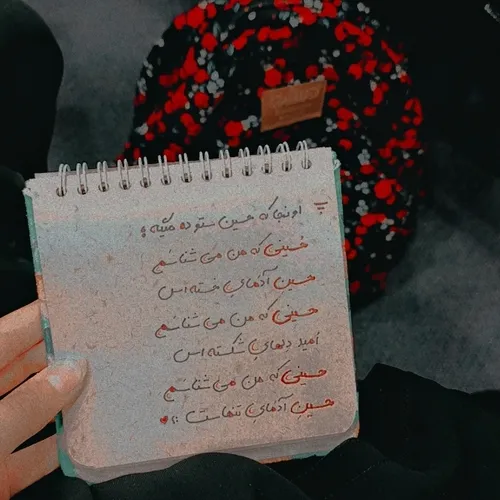 اونجا که حسین ستوده میگه:
حسینی که من می شناسم
حسین آدمای خسته اس
حسینی که من می شناسم
امید دلهای شکسته اس
حسینی که من می شناسم
حسین آدمای تنهاست :) ♥